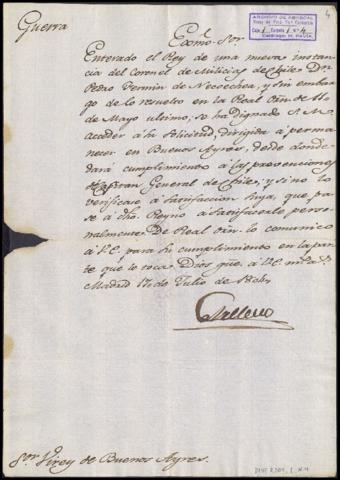 Guerra
Exmo. Sor.
Enterado el Rey de una nueva instan-
cia del Coronel de Milicias de Chile Dn.
Pedro Fermin de Necochea, y sin embar-
go de lo resuelto en la Real órn de 11 de
de Mayo ultimo; se ha dignado S. M.
acceder á su solicitud dirigida á perma-
necer en Buenos Ayres, desde donde
dará cumplimiento á las prevenciones
Capitan General de Chile; y si no lo
verificase á satisfaccion suya, que pa-
se á dho. Reyno á satisfacerle perso-
nalmente. De Real órn lo comunico
á V.E. para su cumplimiento en la par-
te que le toca. Dios gue. á V.E. ms. as.
Madrid 17 de Julio de
Sor. Virey de Buenos Ayres.
4